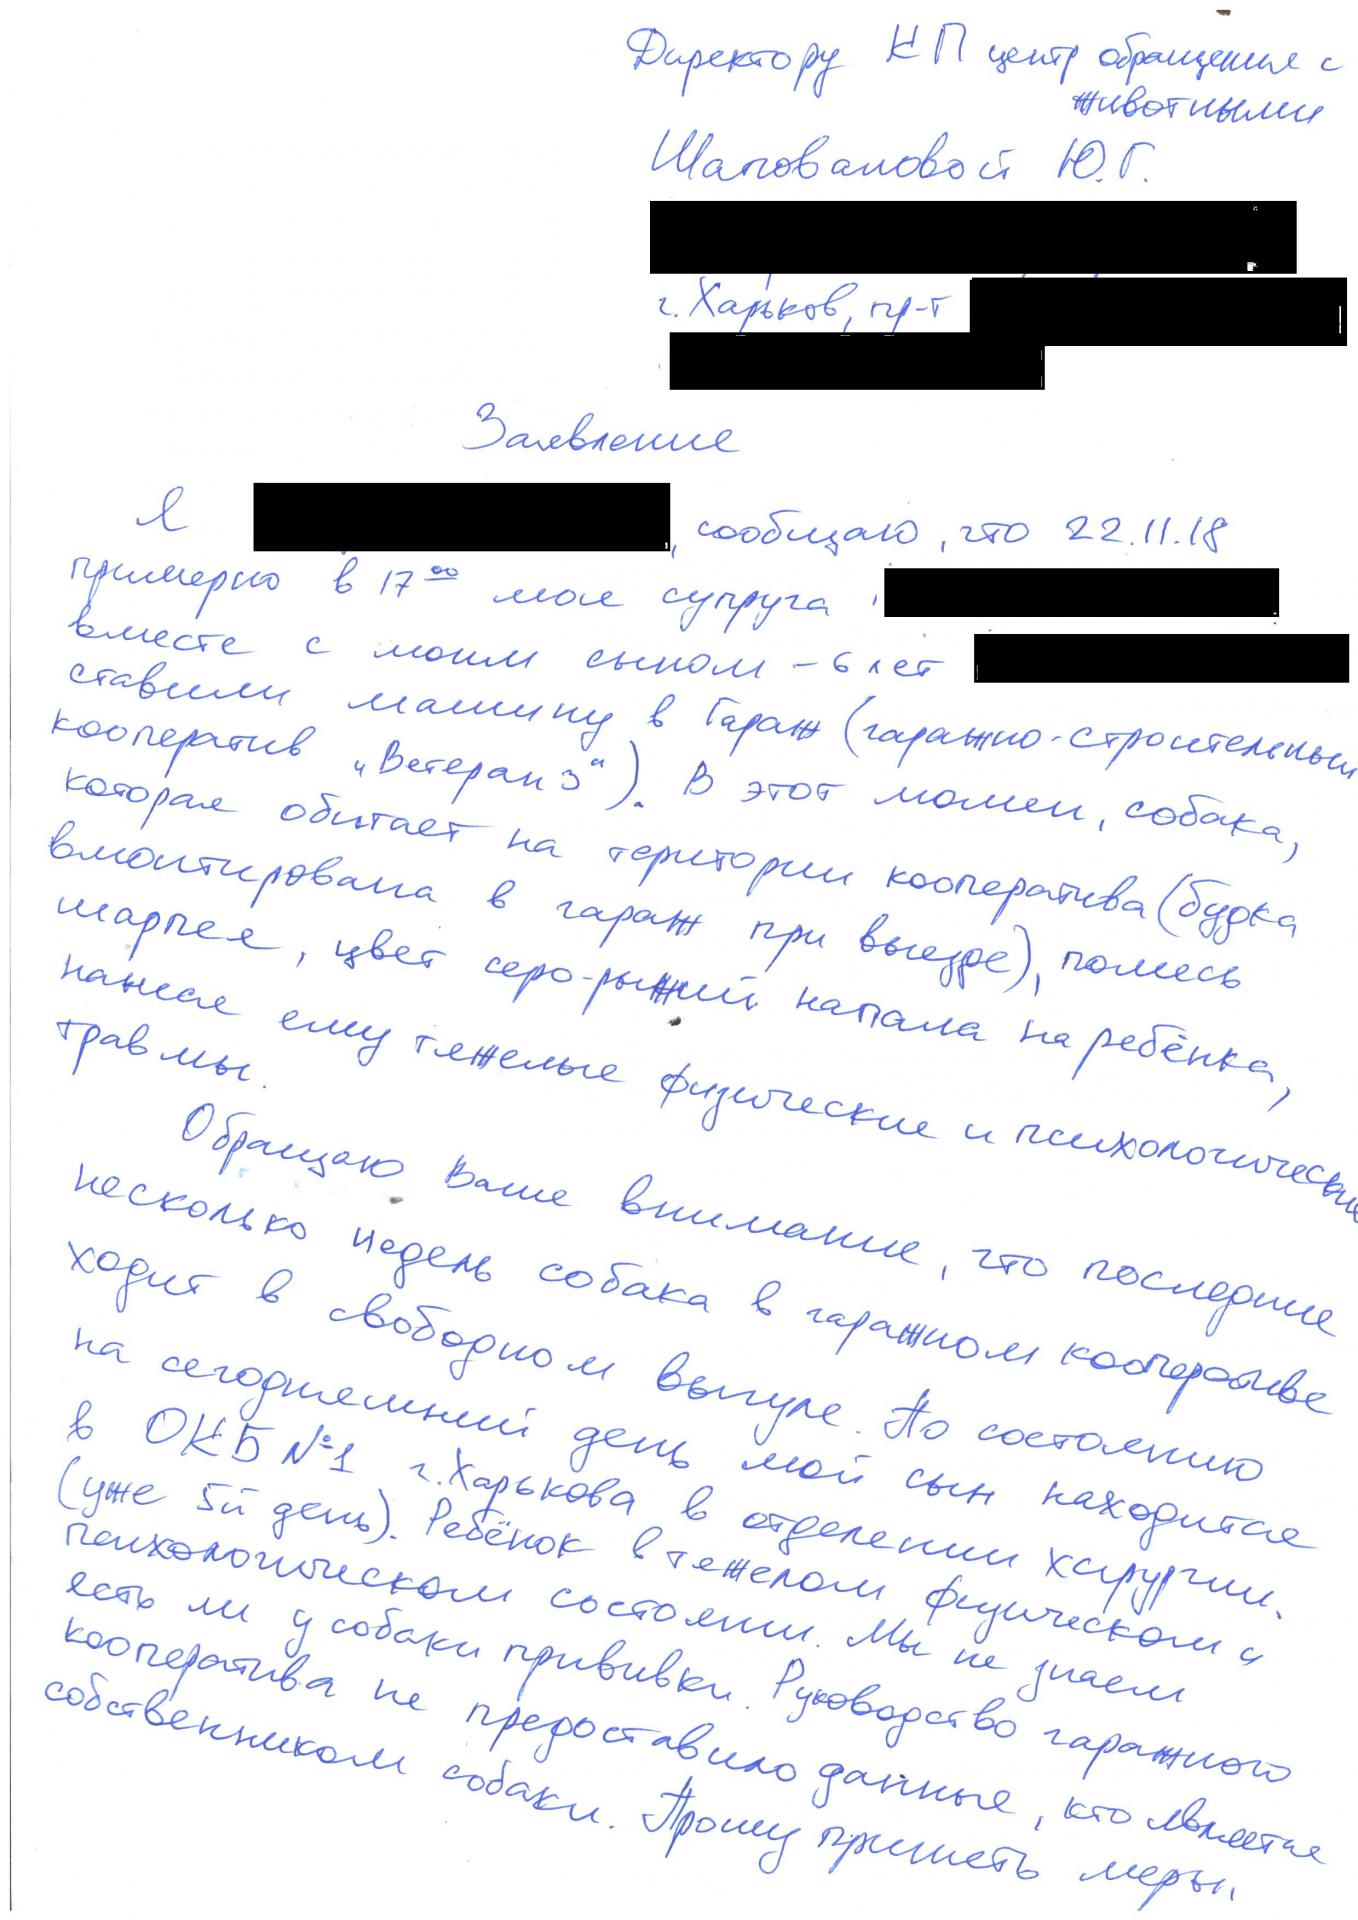 Директору КП центр обращения с
животными
Шаповаловой Ю.Г.
г. Харьков, пр-т
Заявление
Я , сообщаю, что 22.11.18
примерно в 17 00 моя супруга
вместе с моим сыном – 6 лет
ставили машину в Гараж (гаражно-строительный
кооператив „Ветеран 3“). В этот момен, собака,
которая обитает на територии кооператива (будка
вмонтирована в гараж при выезде), помесь
шарпея, цвет серо-рыжий напала на ребёнка,
нанеся ему тяжелые физические и психологические
травмы.
Обращаю Ваше внимание, что последние
несколько недель собака в гаражном кооперативе
ходит в свободном выгуле. По состоянию
на сегодняшний день мой сын находится
в ОКБ №1 г. Харькова в отделении хирургии.
(уже 5й день). Ребёнок в тяжелом физическом и
психологическом состоянии. Мы не знаем
есть ли у собаки прививки. Руководство гаражного
кооператива не предоставило данные, кто является
собственником собаки. Прошу принять меры.